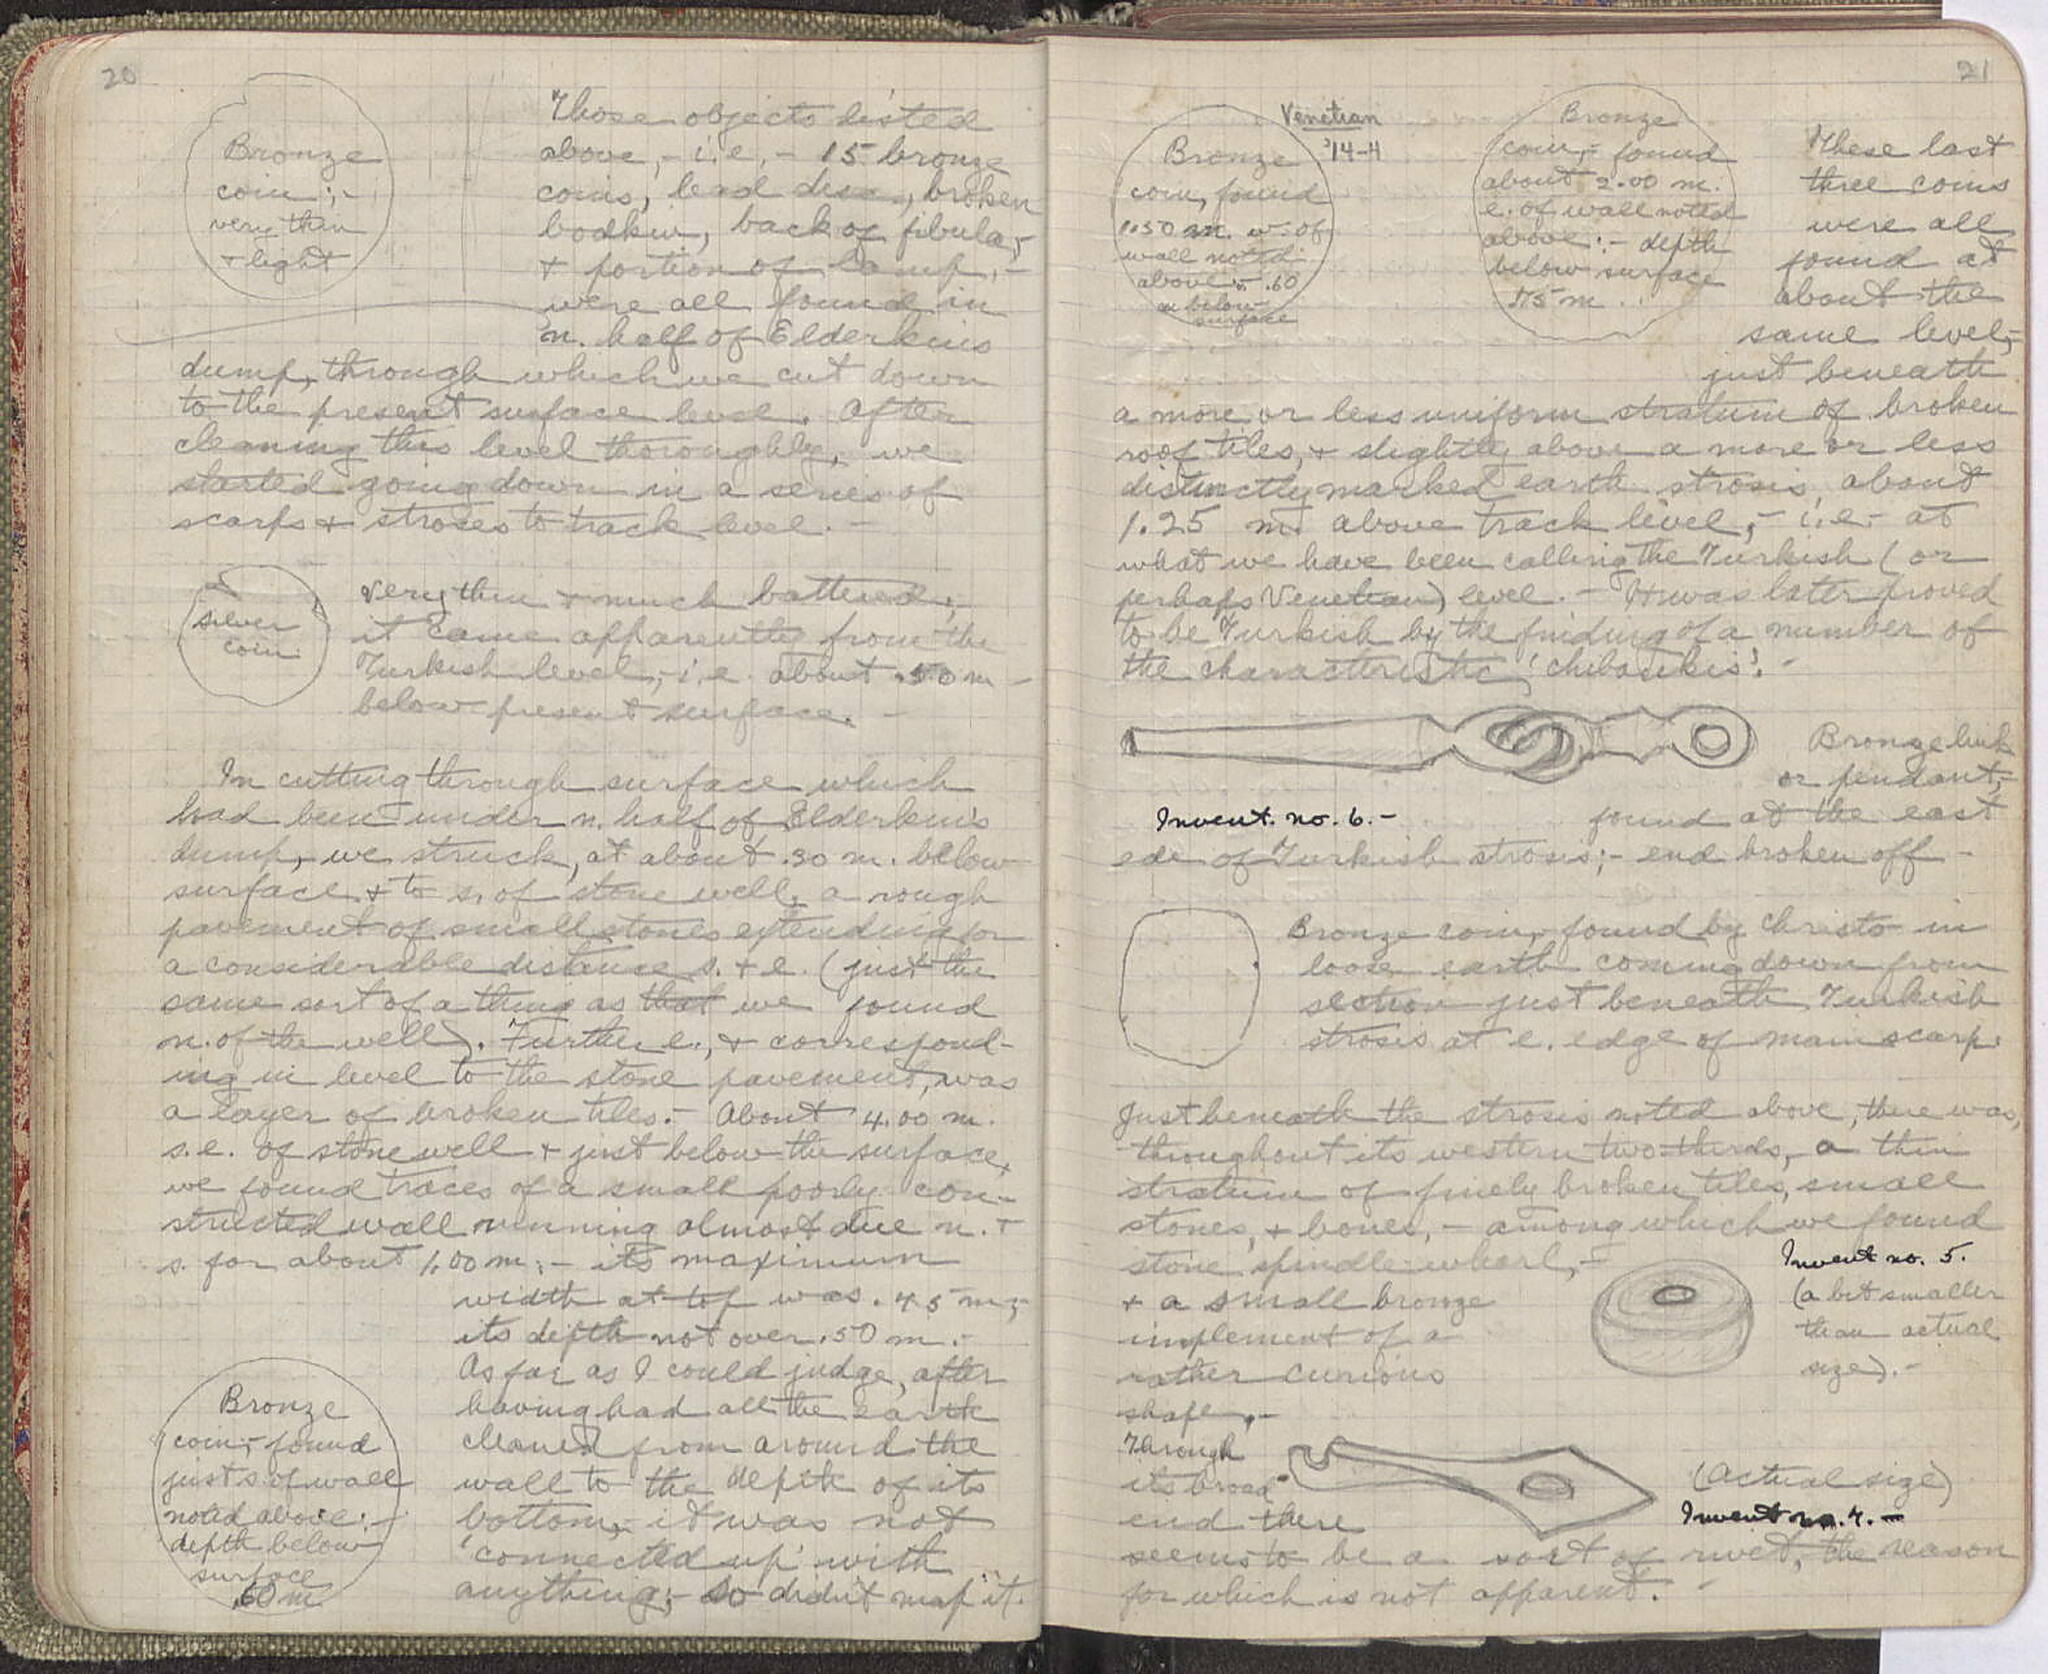 20
Bronze
coin;-
very thin
+ light
Those objects listed
above,- i.e.- 15 bronze
coins, lead disc, broken
bodkin, back of fibula,-
+ portion of lamp,-
were all found in
n. half of Elderkin's
dump, through which we cut down
to the present surface level. After
cleaning this level thoroughly, we
started going down in a series of
scarfs + stroses to track level.-
silver
coin.
Very thin + much battered;-
it came apparently from the
Turkish level,- i.e. about .50 m -
below present surface.-
In cutting through surface which
had been under n. half of Elderkin's
dump, we struck, at about .30 m. below
surface + to s. of stone well, a rough
pavement of small stones extending for
a considerable distance s. + e. (just the
same sort of a thing as that we found
n. of the well). Further e., + correspond-
ing in level to the stone pavement, was
a layer of broken tiles.- About 4.00 m.
s.e. of stone well + just below the surface,
we found traces of a small poorly con-
structed wall running almost due n. +
s. for about 1.00 m;- its maximum
width at top was .45 m;-
its depth not over .50 m.-
As far as I could judge, after
having had all the earth
cleaned from around the
wall to the depth of its
bottom,- it was not
'connected up' with
anything;- so didn't map it.
Bronze
coin,- found
just s. of wall
noted above:-
depth below
surface
.60 m
21
Venetian
'14-H
Bronze
coin, found
1.50 m. w. of
wall noted
above - .60
m below
surface
Bronze
coin,- found
about 2.00 m.
e. of wall noted
above:- depth
below surface
.75 m.
These last
three coins
were all
found at
about the
same level,-
just beneath
a more or less uniform stratum of broken
roof tiles, + slightly above a more or less
distinctly marked earth strosis, about
1.25 m. above track level,- i.e.- at
what we have been calling the Turkish (or
perhaps Venetian) level.- It was later proved
to be Turkish by the finding of a number of
the characteristic 'chiboukis'.-
Bronze link
or pendant,-
Invent. no. 6.-
found at the east
edge of Turkish strosis;- end broken off-
Bronze coin, found by Christo in
loose earth coming down from
section just beneath Turkish
strosis at e. edge of main scarp.
Just beneath the strosis noted above, there was,
throughout its western two-thirds, a thin
stratum of finely broken tiles, small
stones, + bones,- among which we found
stone spindle-whorl,-
Invent no. 5.
(a bit smaller
than actual
size).-
+ a small bronze
implement of a
rather curious
shape,-
Through
its broad
end there
(Actual size)
Invent no. 4.-
seems to be a sort of rivet, the reason
for which is not apparent.-